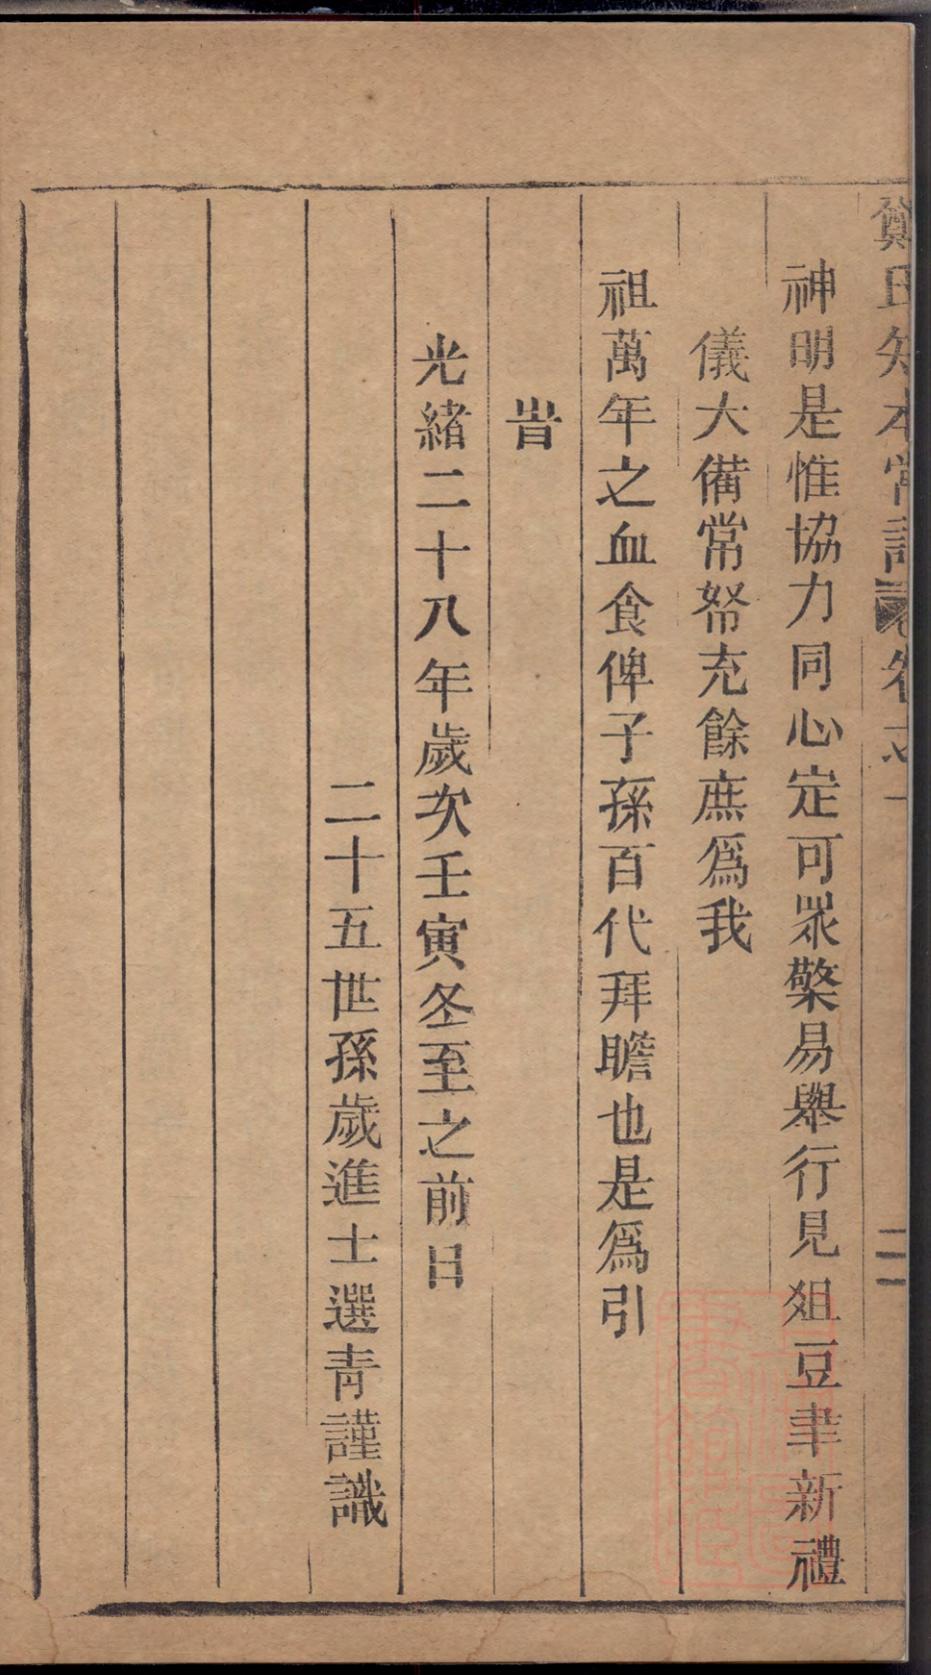 鄭氏知本常記
卷之一
二
神明是惟協力同心定可眾擎易舉行見俎豆聿新禮
儀大備常帑充餘庶爲我
祖萬年之血食俾子孫百代拜瞻也是爲引
旹
光緒二十八年歲次壬寅冬至之前日
二十五世孫歲進士選青謹識